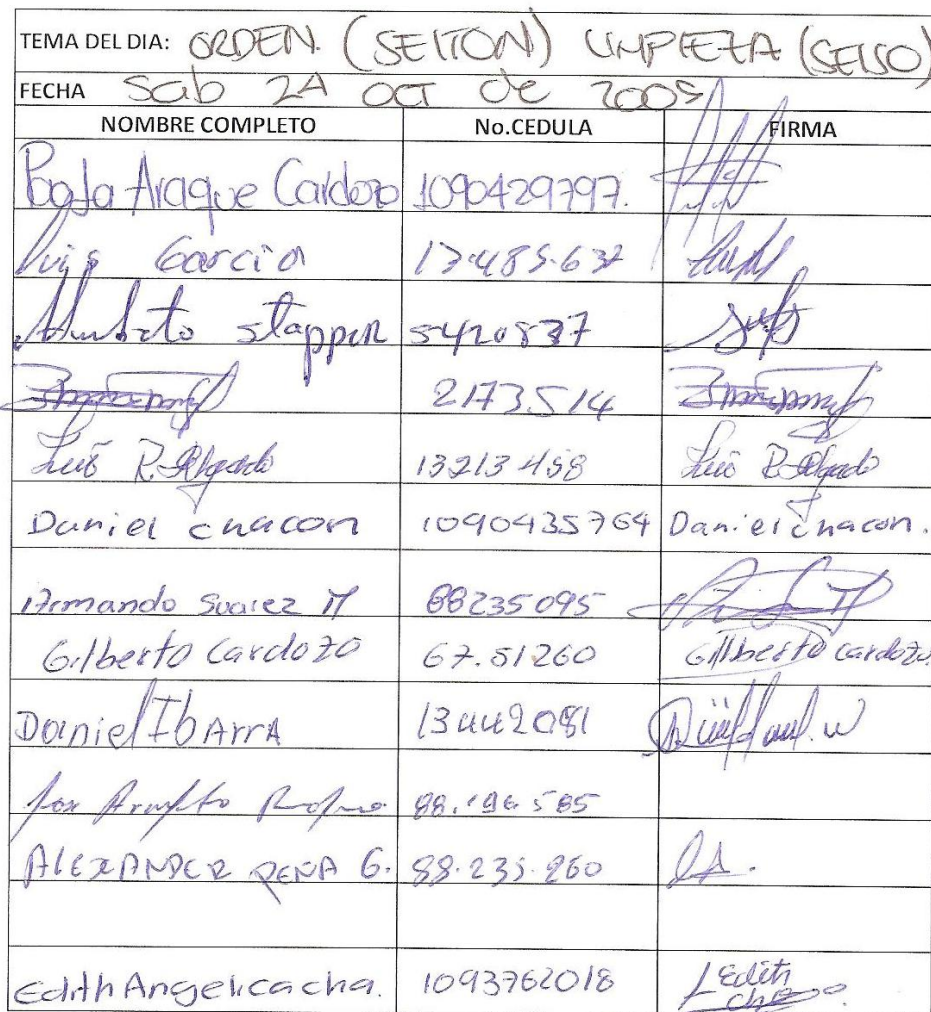 TEMA DEL DIA: ORDEN. (SEITON) LIMPIEZA (SEISO)
FECHA Sab 24 OCT de 2009
NOMBRE COMPLETO No.CEDULA FIRMA
Paola Araque Cardozo 1090429797.
Luis Garcia 13.485.637
Humberto stapper 5420537
2173514
Luis R. Delgado 13213458 Luis R. Delgado
Daniel chacon 1090435764 Daniel chacon.
Armando Suarez M 88235095
Gilberto Cardozo 67.51260 Gilberto cardozo.
Daniel IbArrA 13442081
88.196.585
ALEXANDER PEÑA G. 88.235.260
Edith Angelica cha. 1093762018 Edith cha